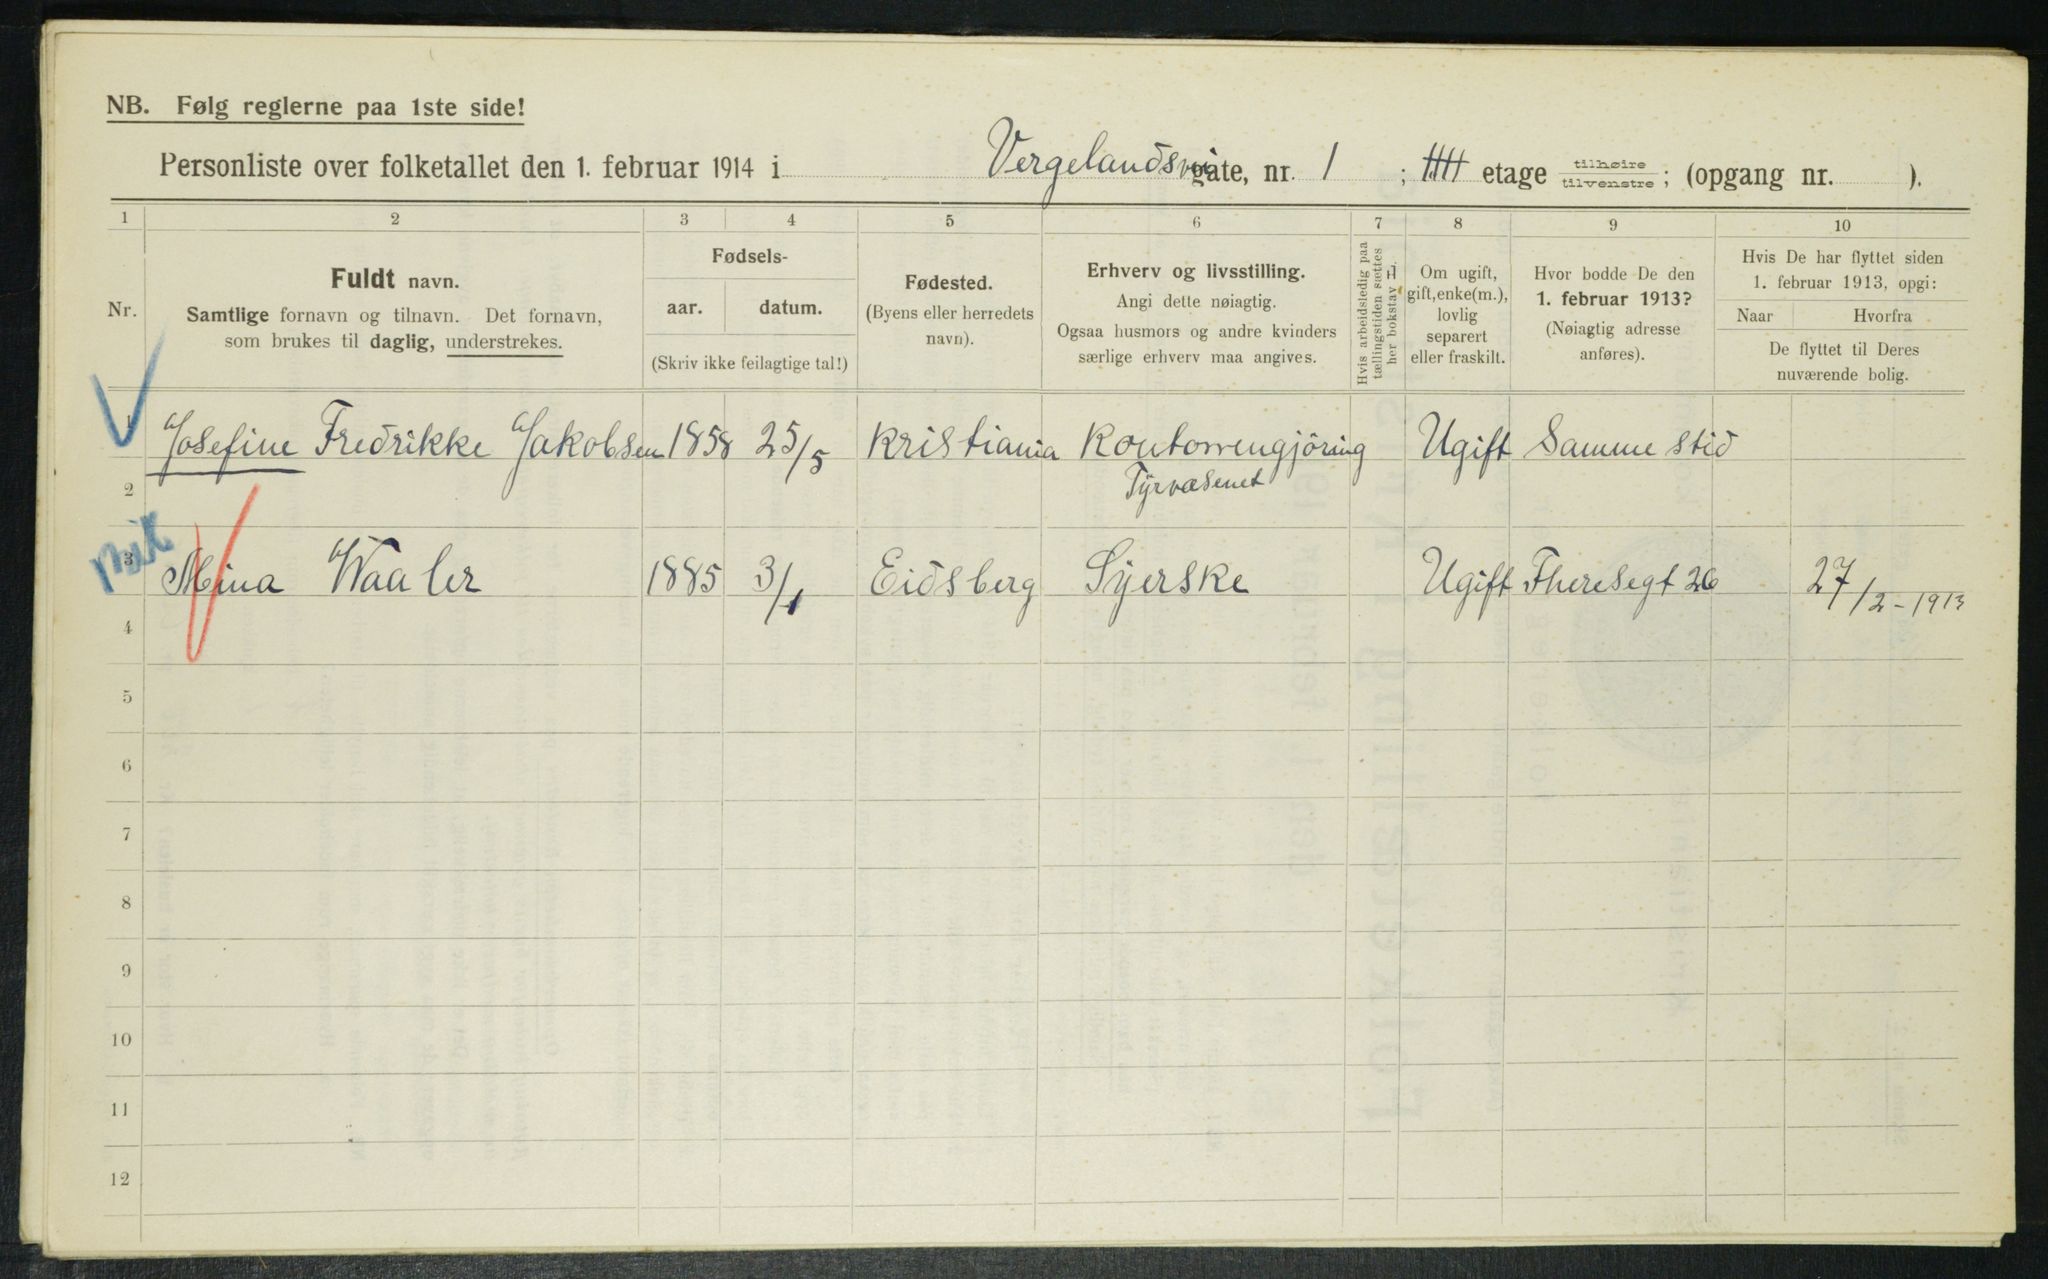 NB. Følg reglerne paa 1ste side!
Personliste over folketallet den 1. februar 1914 i Vergelandsvei gate, nr. 1 ; IIII etage tilhøire / tilvenstre ; (opgang nr. ).
1 2 3 4 5 6 7 8 9 10
Nr.
Fuldt navn.
Samtlige fornavn og tilnavn. Det fornavn,
som brukes til daglig, understrekes.
Fødsels-
aar. datum.
(Skriv ikke feilagtige tal!)
Fødested.
(Byens eller herredets
navn).
Erhverv og livsstilling.
Angi dette nøiagtig.
Ogsaa husmors og andre kvinders
særlige erhverv maa angives.
Hvis arbeidsledig paa
tællingstiden sættes
her bokstav
Om ugift,
gift, enke(m.),
lovlig
separert
eller fraskilt.
Hvor bodde De den
1. februar 1913?
(Nøiagtig adresse
anføres).
Hvis De har flyttet siden
1. februar 1913, opgi:
Naar Hvorfra
De flyttet til Deres
nuværende bolig.
1 Josefine Fredrikke Jakobsen 1858 25/5 Kristiania Kontorrengjöring Ugift Samme sted
2 Fyrvæsenet
3 Mina Waaler 1885 3/1 Eidsberg Syerske Ugift Theresegt 26 27/2-1913
4
5
6
7
8
9
10
11
12